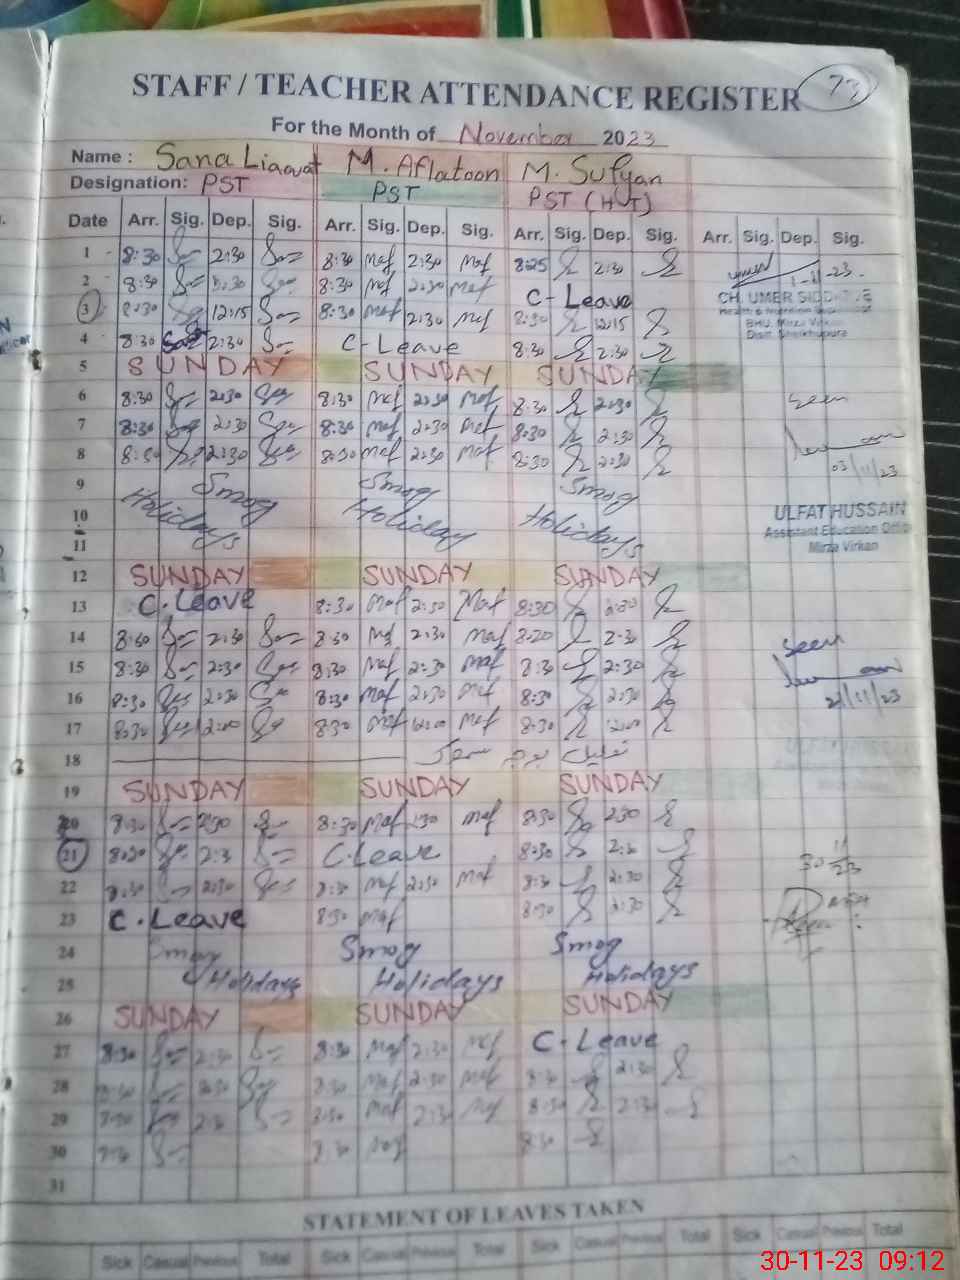 STAFF / TEACHER ATTENDANCE REGISTER 73
For the Month of November 2023
Name : Sana Liaqat M. Aflatoon M. Sufyan
Designation: PST PST PST (HT)
Date Arr. Sig. Dep. Sig. Arr. Sig. Dep. Sig. Arr. Sig. Dep. Sig. Arr. Sig. Dep. Sig.
1 8:30 2:30 8:30 Maf 2:30 Maf 8:25 2:30
1-11-23.
2 8:30 2:30 8:30 Maf 2:30 Maf C-Leave
CH. UMER
3 8:30 12:15 8:30 Maf 2:30 Maf 8:30 12:15
BHU. Mirza Virkan
Distt. Sheikhupura
4 8:30 2:30 C-Leave 8:30 2:30
5 SUNDAY SUNDAY SUNDAY
6 8:30 2:30 8:30 Maf 2:30 Maf 8:30 2:30 Seen
7 8:30 2:30 8:30 Maf 2:30 Maf 8:30 2:30
8 8:30 2:30 8:30 Maf 2:30 Maf 8:30 2:30
/11/23
9 Smog Smog Smog
10 Holidays Holiday Holidays
ULFAT HUSSAIN
Assistant Education Office
Mirza Virkan
11
12 SUNDAY SUNDAY SUNDAY
13 C.Leave 8:30 Maf 2:30 Maf 8:30 2:30
14 8:30 2:30 8:30 Maf 2:30 Maf 8:20 2:30 Seen
15 8:30 2:30 8:30 Maf 2:30 Maf 8:30 2:30
16 8:30 2:30 8:30 Maf 2:30 Maf 8:30 2:30
/11/23
17 8:30 12:00 8:30 Maf 12:00 Maf 8:30 12:00
18
19 SUNDAY SUNDAY SUNDAY
20 8:30 2:30 8:30 Maf Maf 8:30 2:30
21 8:30 2:3 C.Leave 8:30 2:30
30 11 23
22 8:30 2:30 8:30 Maf 2:30 Maf 8:30 2:30
23 C.Leave 8:30 Maf 8:30 2:30
24 Smog Smog Smog
25 Holidays Holidays Holidays
26 SUNDAY SUNDAY SUNDAY
27 8:30 2:30 8:30 Maf 2:30 Maf C-Leave
28 8:30 2:30 8:30 Maf 2:30 Maf 8:30 2:30
29 8:30 2:30 8:30 Maf 2:30 Maf 8:30 2:30
30 8:30 8:30
31
STATEMENT OF LEAVES TAKEN
Sick Casual Previous Total Sick Casual Previous Total Sick Casual Previous Total Sick Casual Previous Total
30-11-23 09:12